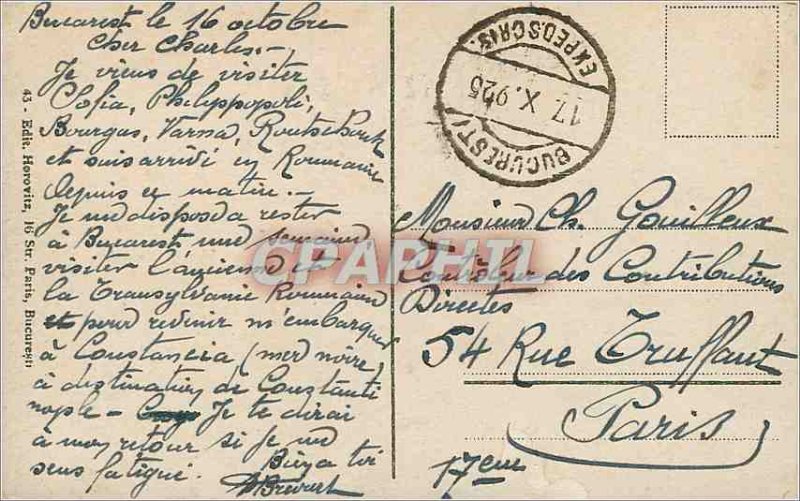 Bucarest le 16 octobre
Cher Charles. –
Je viens de visiter
Sofia, Philippopoli,
Bourgas, Varna, Routschouk
et suis arrivé en Roumanie
depuis ce matin. –
Je me dispose à rester
à Bucarest une semaine,
visiter l'ancienne et
la Transylvanie Roumaine
et pour revenir m'embarquer
à Constancia (mer noire)
à destination de Constanti
nople – Je te dirai
à mon retour si je me
sens fatigué. Bien à toi
43 - Edit. Horovitz, 16 Str. Paris, Bucureşti
BUCUREŞTI
17 X. 925
EXPED.SCRIS.
Monsieur Ch. Gouilleux
Contrôleur des Contributions
Directes
54 Rue Truffaut
Paris
17eme
CPAPHIL